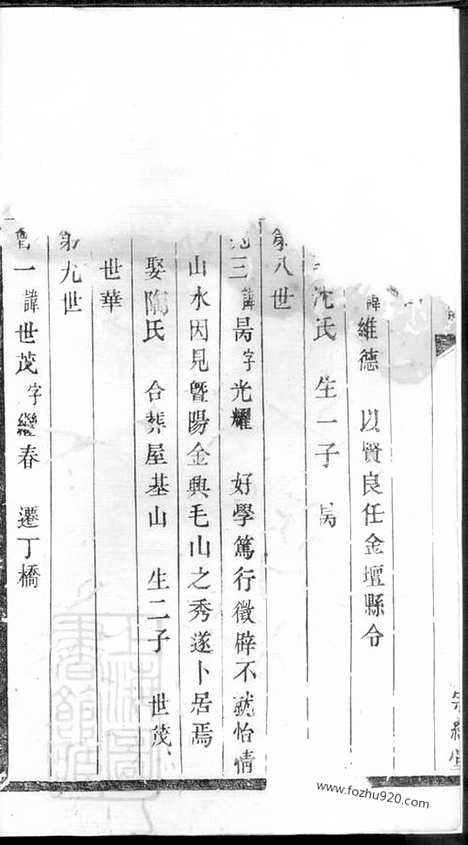 諱維德　以賢良任金壇縣令
沈氏　生一子　昺
第八世
三諱昺字光耀　好學篤行徵辟不就怡情
山水因見暨陽金興毛山之秀遂卜居焉
娶陶氏　合葬屋基山　生二子　世茂
世華
第九世
一諱世茂字繼春　遷丁橋
www.fozhu920.com